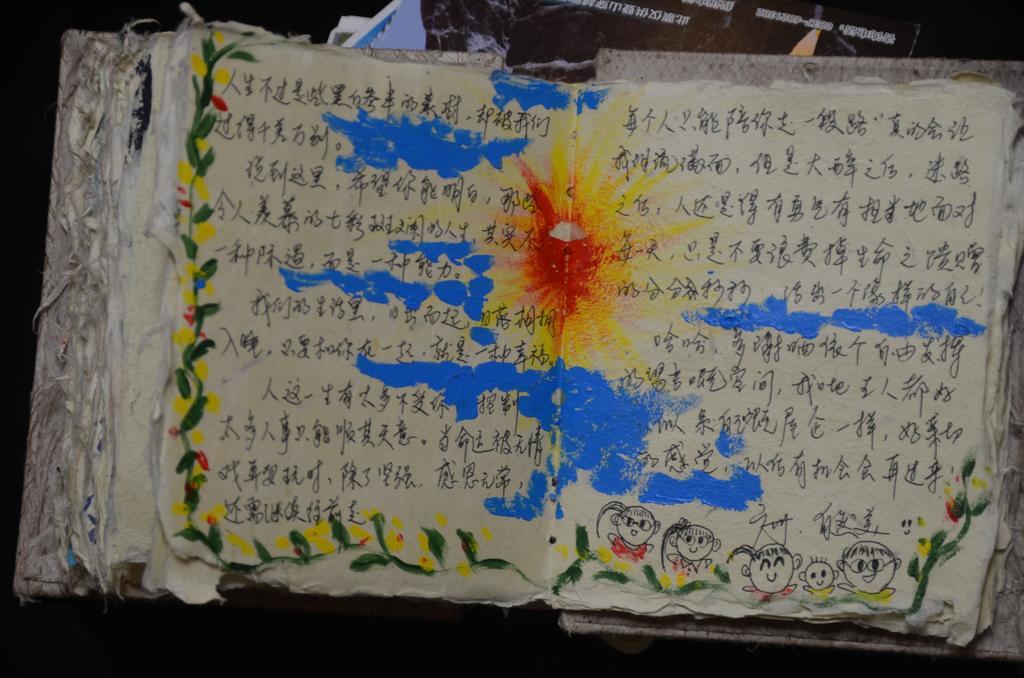 人生不过是些黑白参半的素材,却被我们
过得千差万别。
说到这里,希望你能明白,那些
令人羡慕的七彩斑斓的人生 其实不
一种际遇,而是一种能力。
我们的生活里,日出而起,日落相拥
入睡,只要和你在一起,就是一种幸福。
人这一生有太多不受你 控制
太多人事只能顺其天意。当命运被无情
戏弄耍玩时,除了坚强,感恩无常,
还需继续往前走
每个人只能陪你走一段路"真的会让
我相流满面,但是大醉之后,迷路
之后,人还是得有勇气有担当地面对
每一天,只是不要浪费掉生命之馈赠
的分分秒秒 活出一个像样的自己!
哈哈,多谢哂依个自由发挥
的留言嘅空间,我哋主人都好
似系自己嘅屋企一样,好亲切
的感觉,以后有机会会再过来
广州